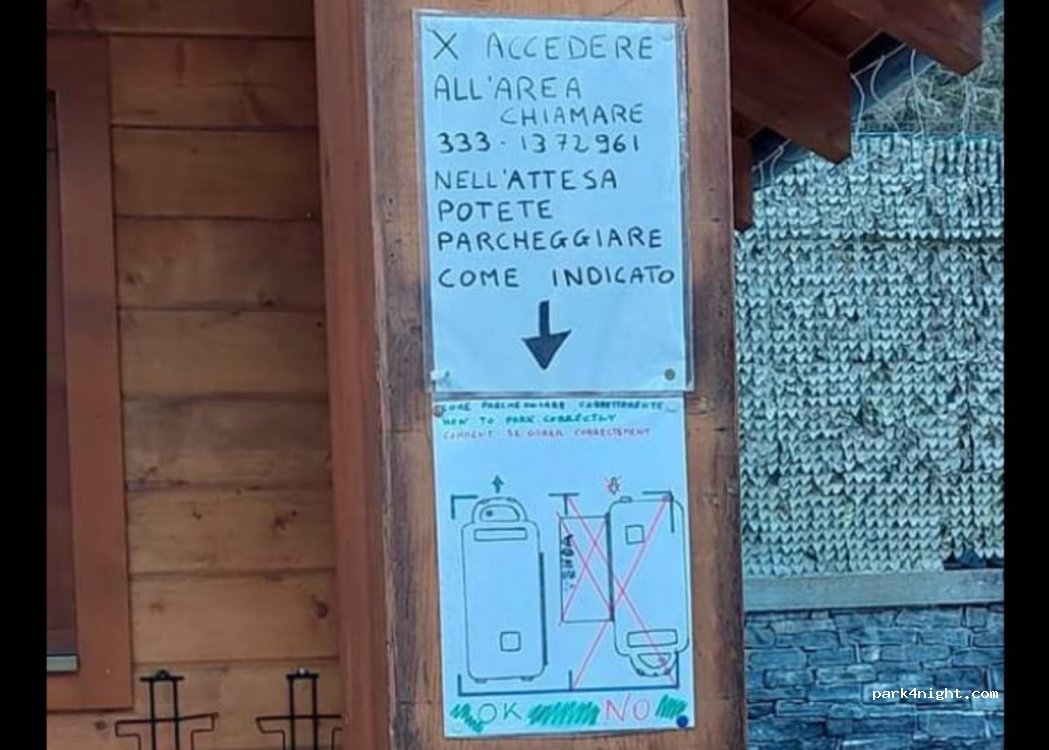 X ACCEDERE
ALL'AREA
CHIAMARE
333-1372961
NELL'ATTESA
POTETE
PARCHEGGIARE
COME INDICATO
COME PARCHEGGIARE CORRETTAMENTE
HOW TO PARK CORRECTLY
COMMENT SE GARER CORRECTEMENT
OK NO
park4night.com